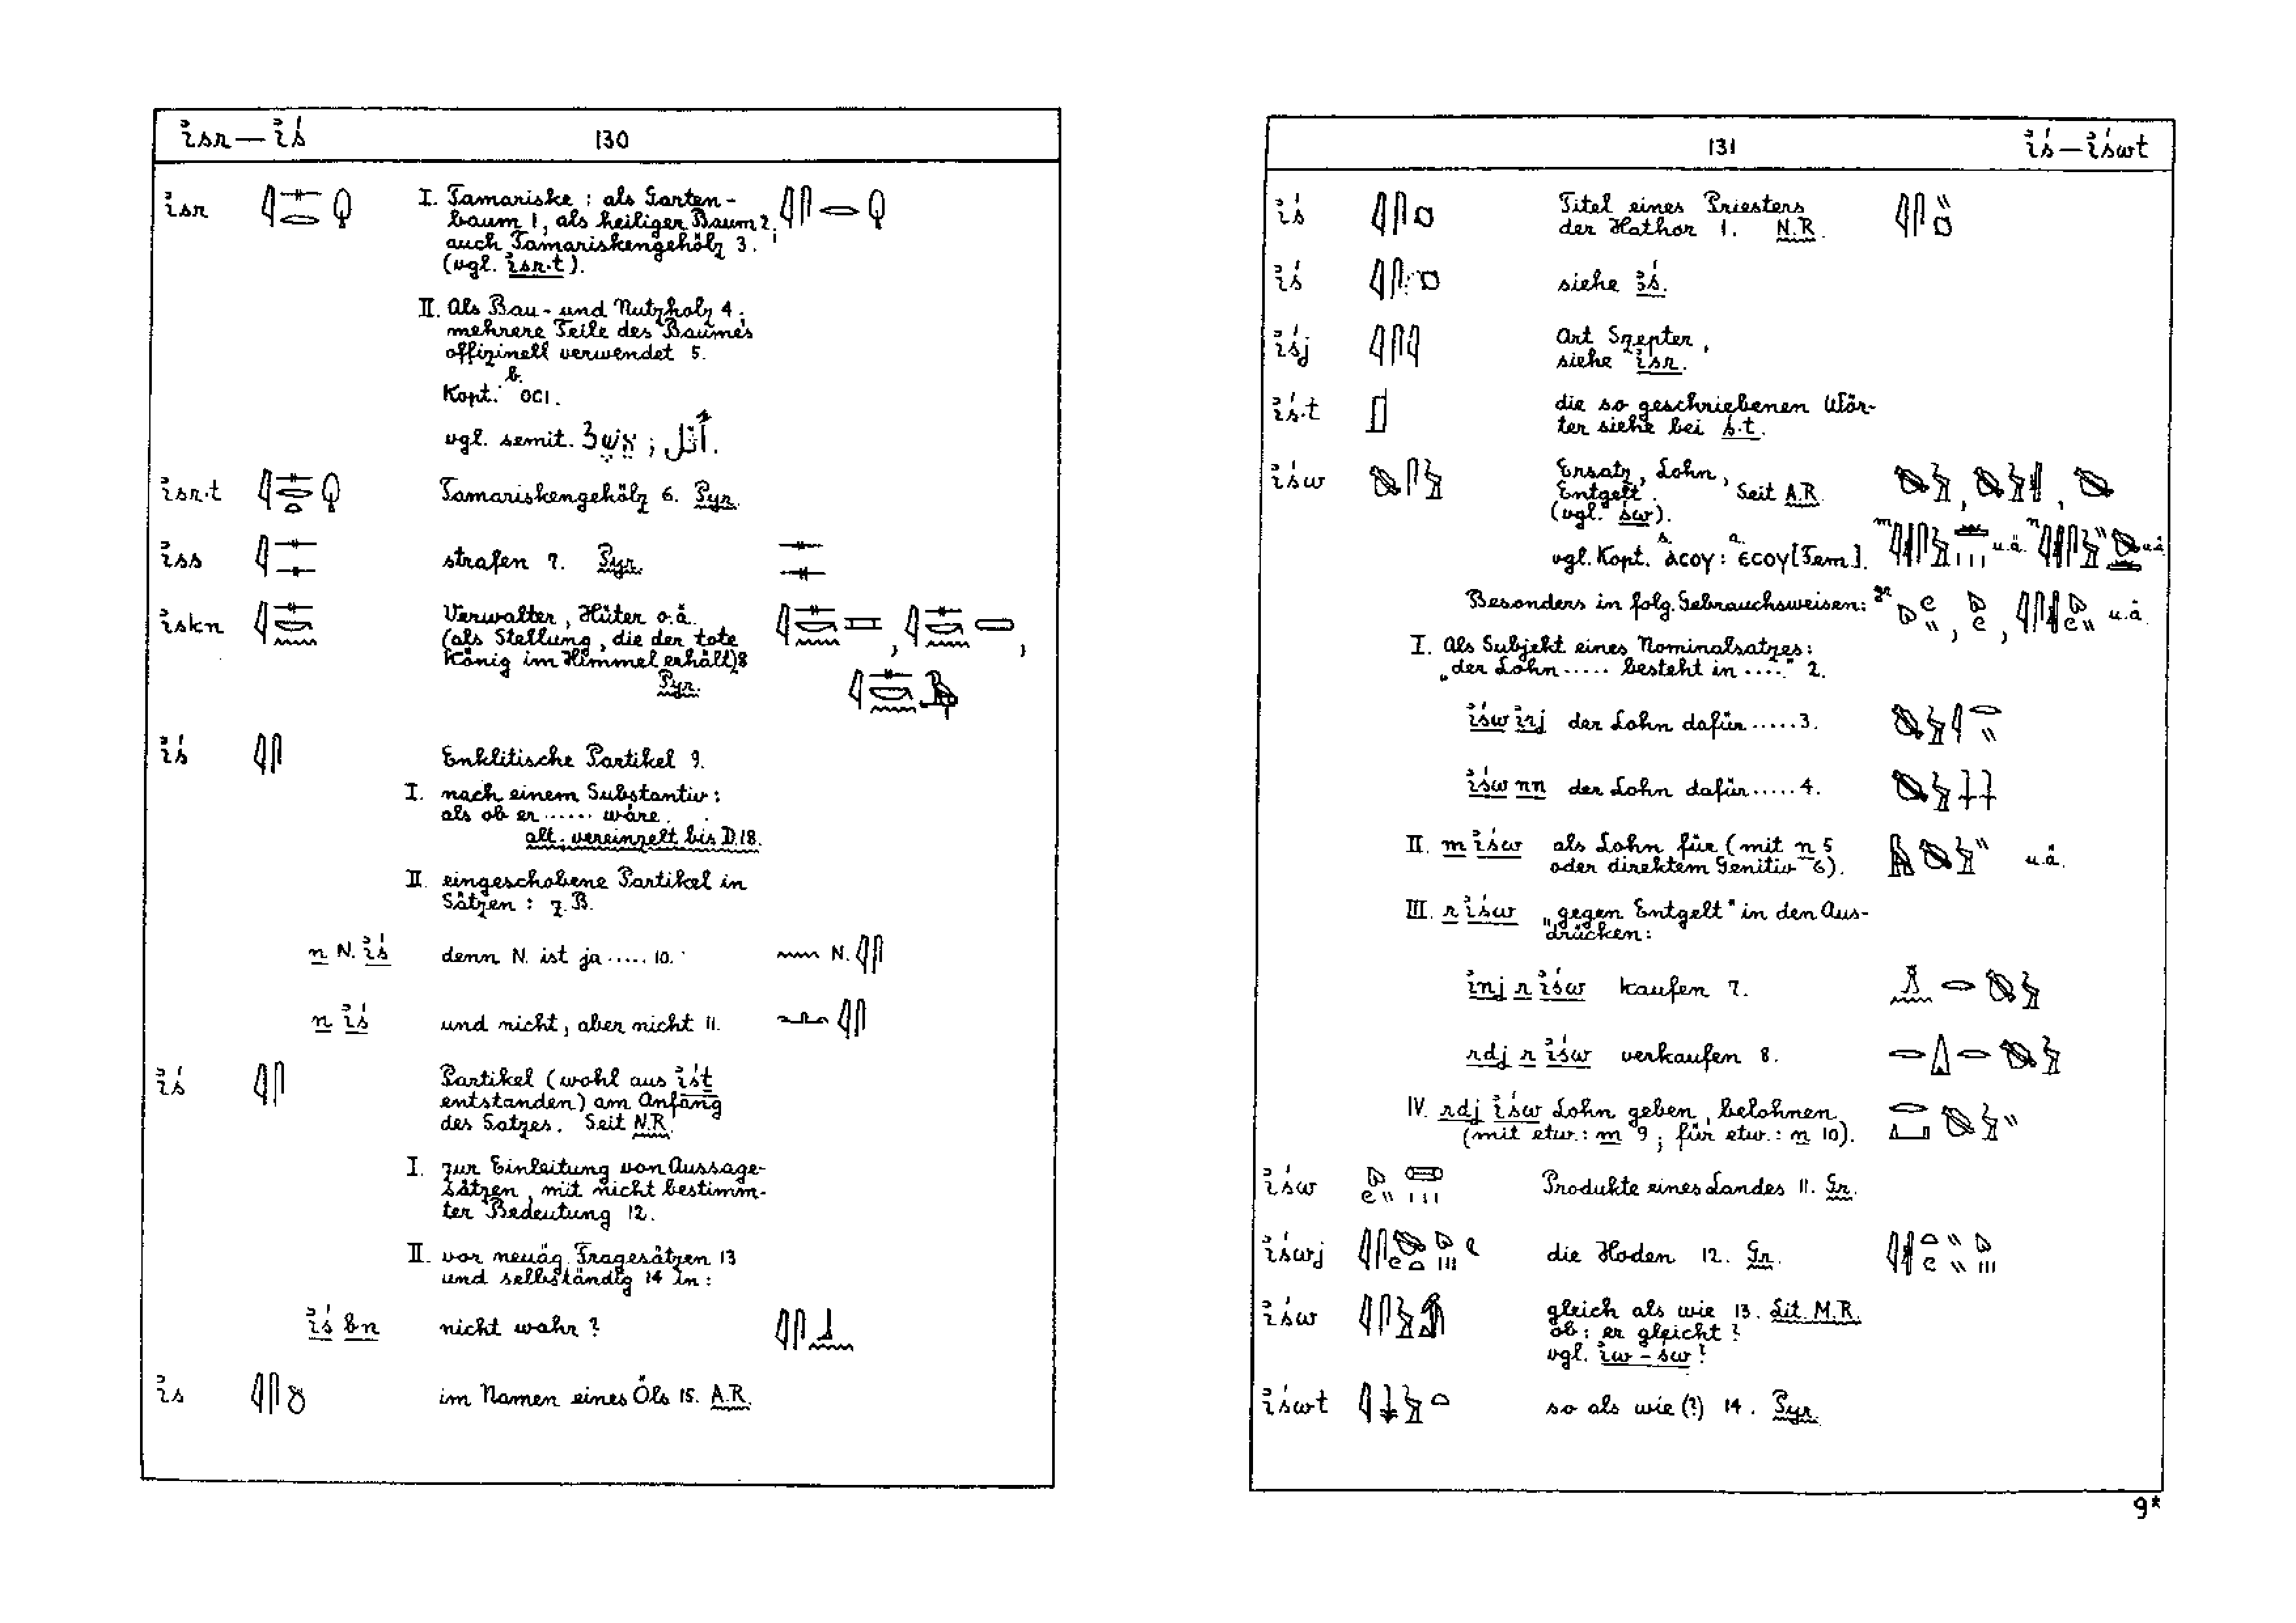 isr — iś
130
isr
I. Tamariske: als Garten-
baum 1, als heiliger Baum 2,
auch Tamariskengehölz 3.
(vgl. isr.t).
II. Als Bau- und Nutzholz 4;
mehrere Teile des Baumes
offizinell verwendet 5.
Kopt. b. ⲟⲥⲓ.
vgl. semit.
isr.t Tamariskengehölz 6. Pyr.
iss strafen 7. Pyr.
iskn Verwalter, Hüter o.ä.
(als Stellung, die der tote
König im Himmel erhält) 8
Pyr.
iś Enklitische Partikel 9.
I. nach einem Substantiv:
als ob er ...... wäre.
alt. vereinzelt bis D.18.
II. eingeschobene Partikel in
Sätzen: z.B.
n N. iś denn N. ist ja ..... 10. N.
n iś und nicht, aber nicht 11.
iś Partikel (wohl aus iśt
entstanden) am Anfang
des Satzes. Seit N.R.
I. zur Einleitung von Aussage-
sätzen, mit nicht bestimm-
ter Bedeutung 12.
II. vor neuäg. Fragesätzen 13
und selbständig 14 in:
iś bn nicht wahr?
is im Namen eines Öls 15. A.R.
131
iś — iśwt
iś Titel eines Priesters
der Hathor 1. N.R.
iś siehe ꜣś.
iśj Art Szepter,
siehe isr.
iś.t die so geschriebenen Wör-
ter siehe bei ś.t.
iśw Ersatz, Lohn,
Entgelt. Seit A.R.
(vgl. św).
vgl. Kopt. s. ⲁⲥⲟⲩ : a. ⲉⲥⲟⲩ [Fem.]. m u.ä. n u.ä.
Besonders in folg. Gebrauchsweisen: gr u.ä.
I. Als Subjekt eines Nominalsatzes:
„der Lohn ..... besteht in ....“ 2.
iśw irj der Lohn dafür ..... 3.
iśw nn der Lohn dafür ..... 4.
II. m iśw als Lohn für (mit n 5 u.ä.
oder direktem Genitiv 6).
III. r iśw „gegen Entgelt“ in den Aus-
drücken:
inj r iśw kaufen 7.
rdj r iśw verkaufen 8.
IV. rdj iśw Lohn geben, belohnen
(mit etw.: m 9; für etw.: n 10).
iśw Produkte eines Landes 11. Gr.
iśwj die Hoden 12. Gr.
iśw gleich als wie 13. Lit. M.R.
ob: er gleicht?
vgl. iw-św?
iśwt so als wie (?) 14. Pyr.
9*